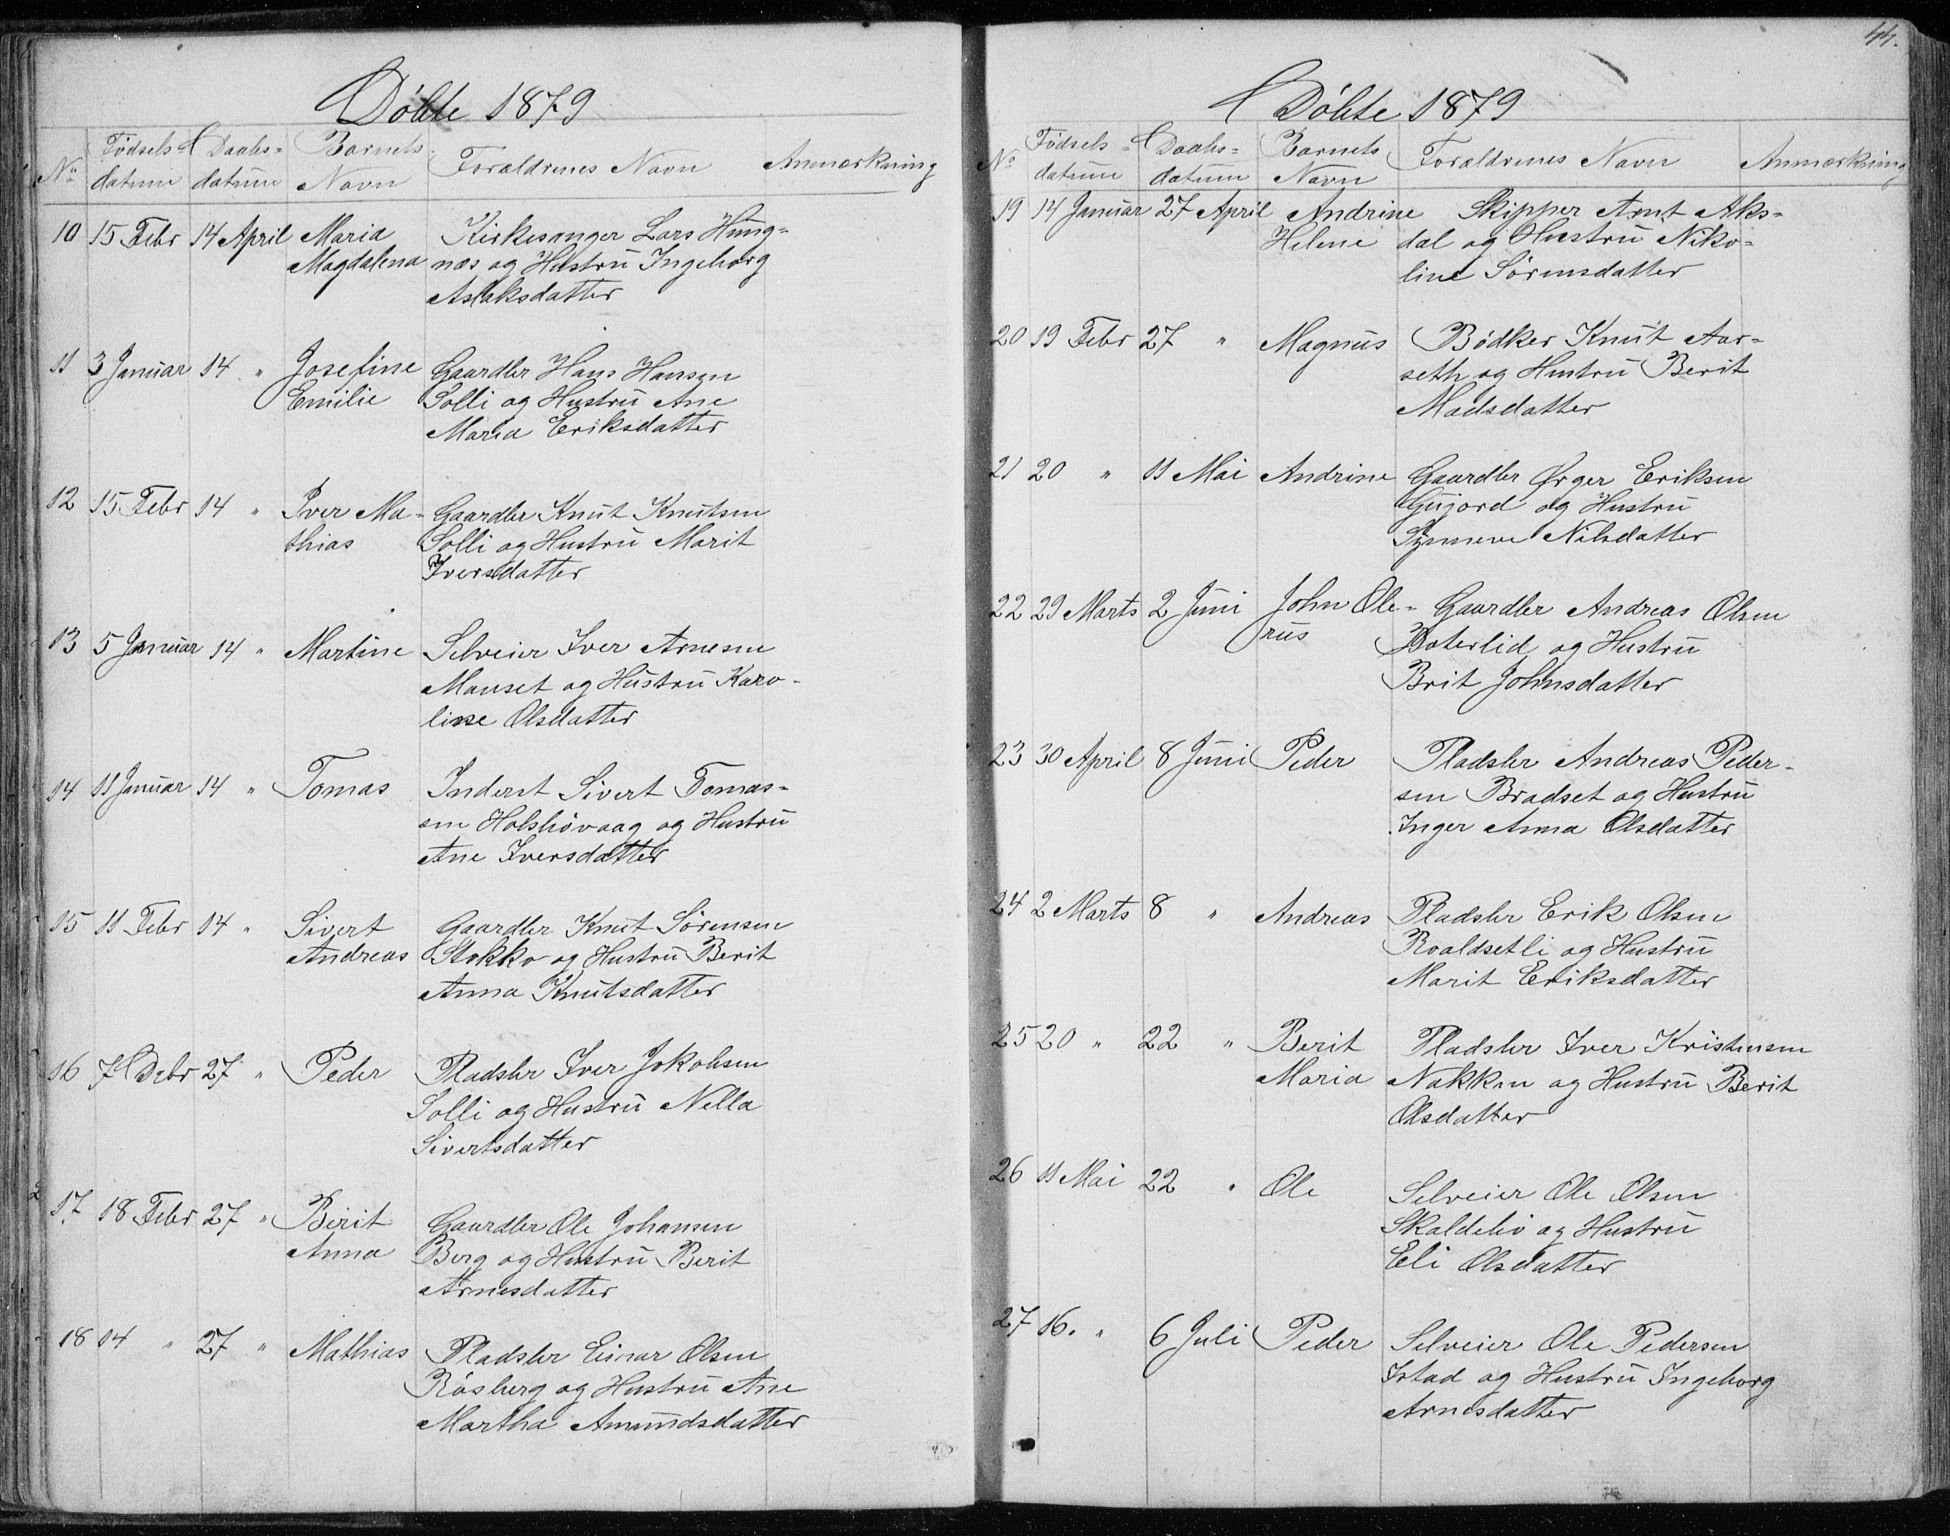 Döbte 1879
No Fødsels= datum Daabs= datum Barnets Navn Forældrenes Navn Anmærkning
10 15 Febr 14 April Maria Kirkesanger Lars Hung=
Magdalena næs og Hustru Ingeborg
Aslaksdatter
11 3 Januar 14 " Josefine Gaardbr Hans Hansen
Emilie Solli og Hustru Ane
Maria Eriksdatter
12 15 Febr 14 " Iver Ma- Gaardbr Knut Knutsen
thias Solli og Hustru Marit
Iversdatter
13 5 Januar 14 " Martine Selveier Iver Arnesen
Mauset og Hustru Karo-
line Olsdatter
14 11 Januar 14 " Tomas Inderst Sivert Tomas=
sen Holshövaag og Hustru
Ane Iversdatter
15 11 Febr 14 " Sivert Gaardbr Knut Sörensen
Andreas Stokko og Hustru Berit
Anna Knutsdatter
16 7 Debr 27 " Peder Pladsbr Iver Jakobsen
Solli og Hustru Nella
Sivertsdatter
17 18 Febr 27 " Berit Gaardbr Ole Johansen
Anna Berg og Hustru Berit
Arnesdatter
18 14 " 27 " Mathias Pladsbr Einar Olsen
Rösberg og Hustru Ane
Martha Amundsdatter
44.
Döbte 1879
No Fødsels= datum Daabs= datum Barnets Navn Forældrenes Navn Anmærkning
19 14 Januar 27 April Andrine Skipper Arnt Aks=
Helene dal og Hustru Niko=
line Sörensdatter
20 19 Febr 27 " Magnus Bödker Knut Aar=
seth og Hustru Berit
Madsdatter
21 20 " 11 Mai Andrine Gaardbr Ørger Eriksen
Gujord og Hustru
Synneve Nilsdatter
22 29 Marts 2 Juni John Ole- Gaardbr Andreas Olsen
rus og Hustru
Brit Johnsdatter
23 30 April 8 Juni Peder Pladsbr Andreas Peder-
sen Bradset og Hustru
Inger Anna Olsdatter
24 2 Marts 8 " Andreas Pladsbr Erik Olsen
Roaldsetli og Hustru
Marit Eriksdatter
25 20 " 22 " Berit Pladsbr Iver Kristensen
Maria Nakken og Hustru Berit
Olsdatter
26 11 Mai 22 " Ole Selveier Ole Olsen
Skaldehö og Hustru
Eli Olsdatter
27 16. " 6 Juli Peder Selveier Ole Pedersen
Istad og Hustru Ingeborg
Arnesdatter